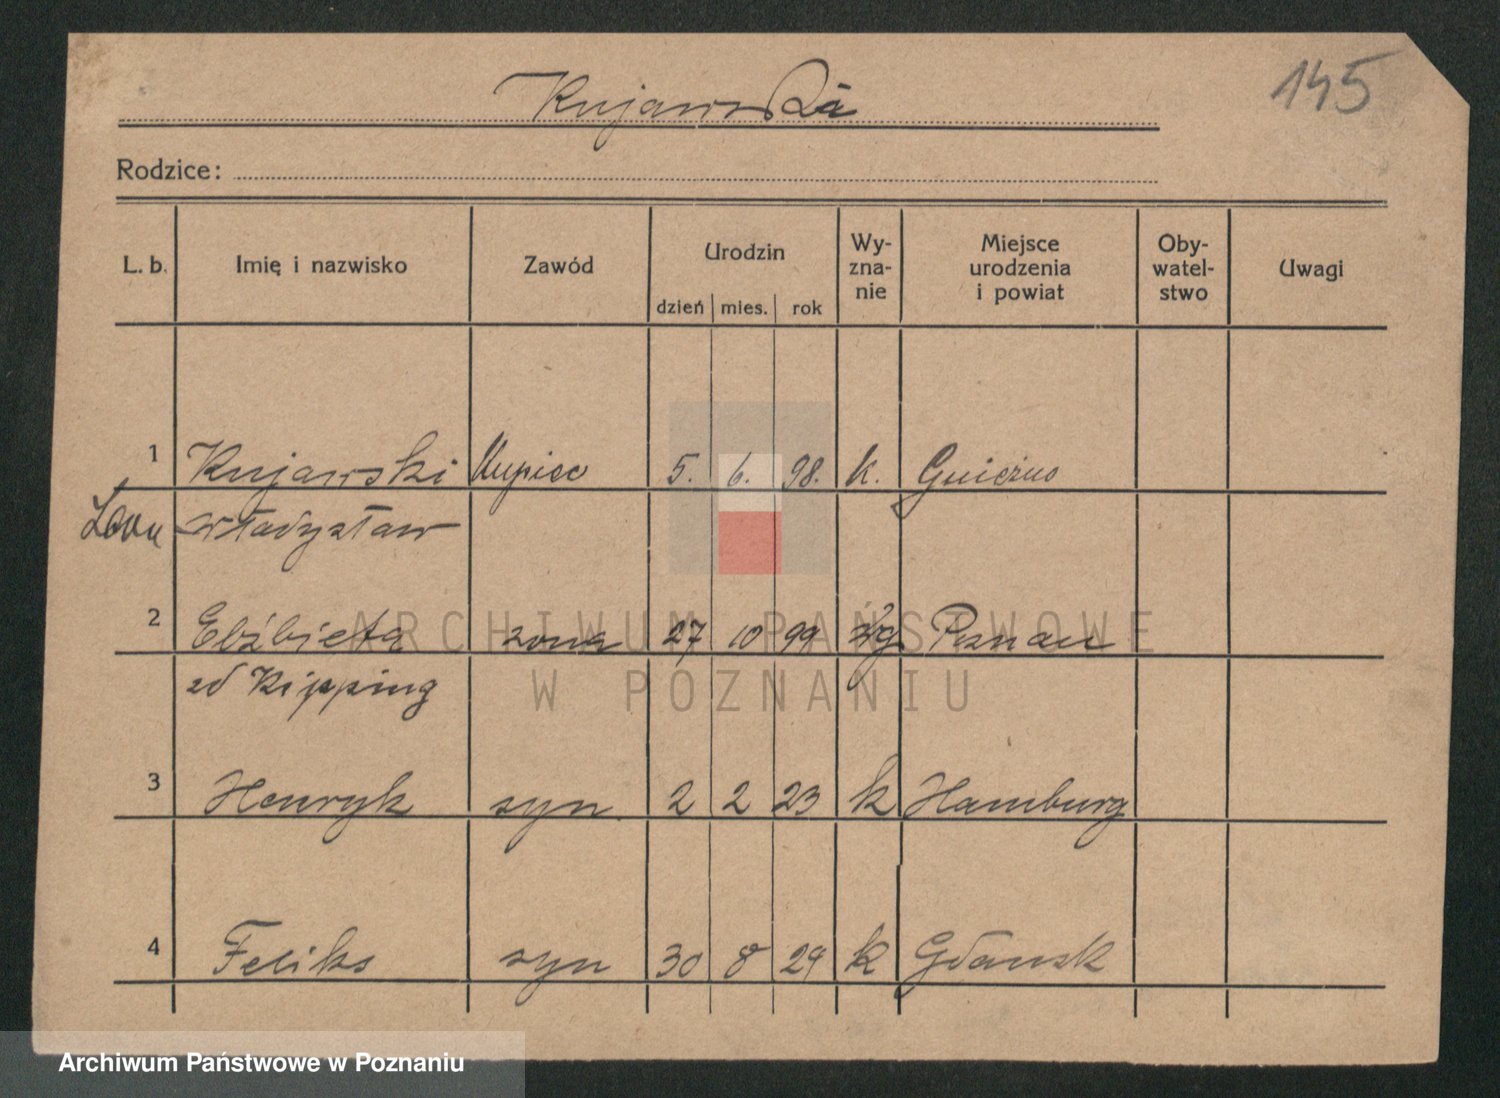 Kujawski
145
Rodzice:
L. b. Imię i nazwisko Zawód Urodzin dzień mies. rok Wy-zna-nie Miejsce urodzenia i powiat Oby-watel-stwo Uwagi
1 Kujawski Kupiec 5. 6. 98. k. Gniezno
Władysław
2 Elżbieta żona 27 10 99 Poznań
zd Kipping
3 Henryk syn 2 2 23 k Hamburg
4 Feliks syn 30 8 29 k Gdańsk
ARCHIWUM PAŃSTWOWE
W POZNANIU
Archiwum Państwowe w Poznaniu